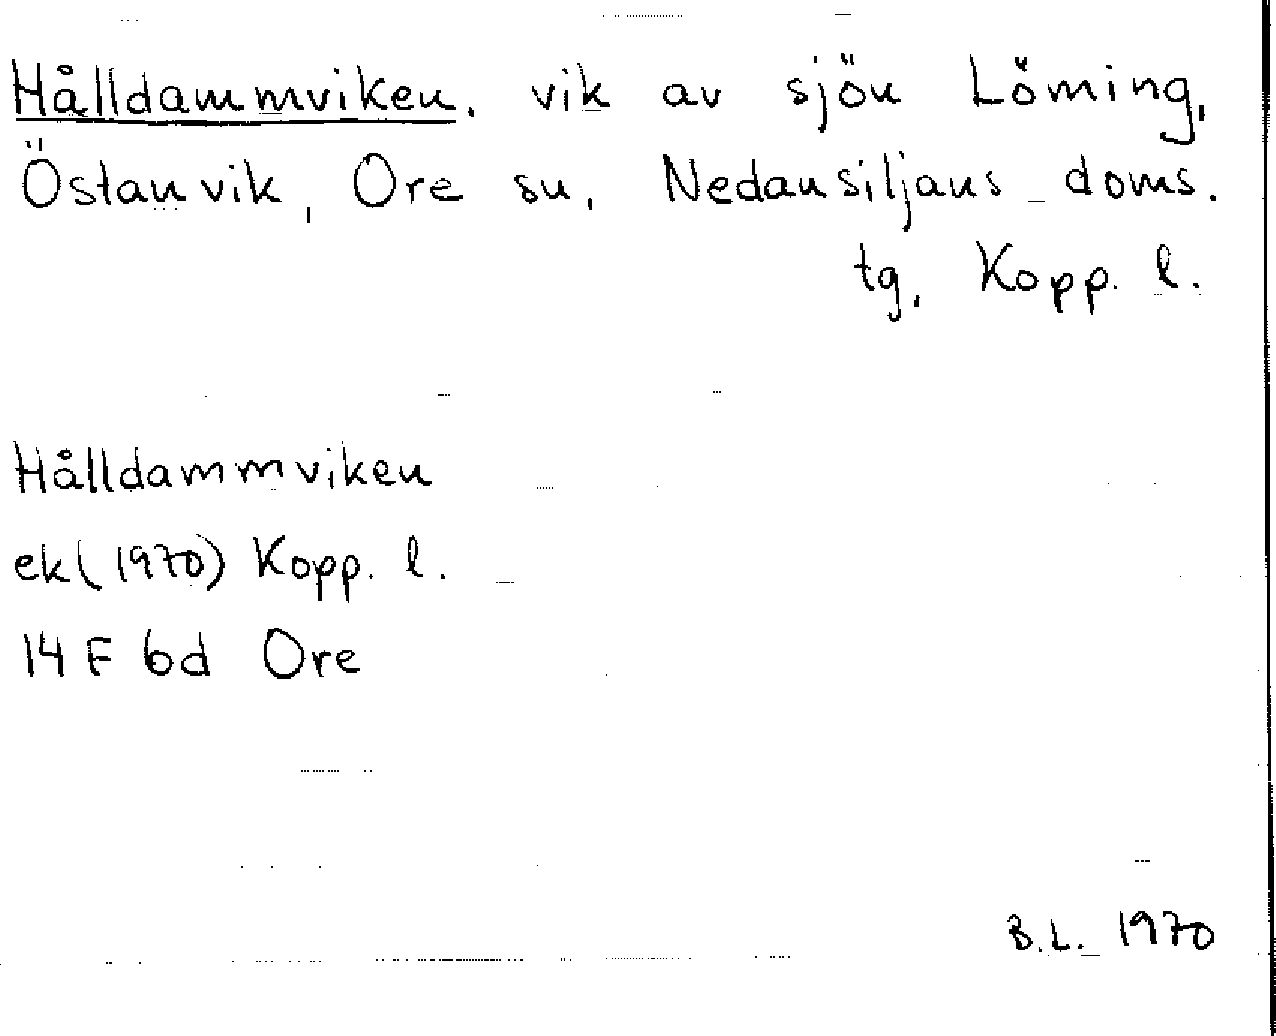 Hålldammviken, vik av sjön Löming,
Östanvik, Ore sn, Nedansiljans doms.
tg, Kopp. l.
Hålldammviken
ek (1970) Kopp. l.
14 F 6d Ore
B.L. 1970